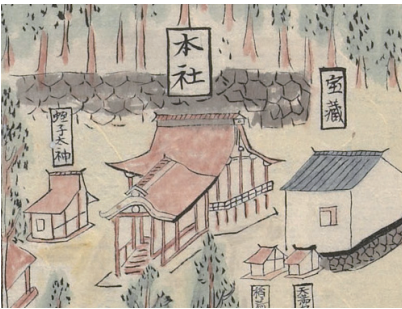 本社
宝蔵
蛭子太神